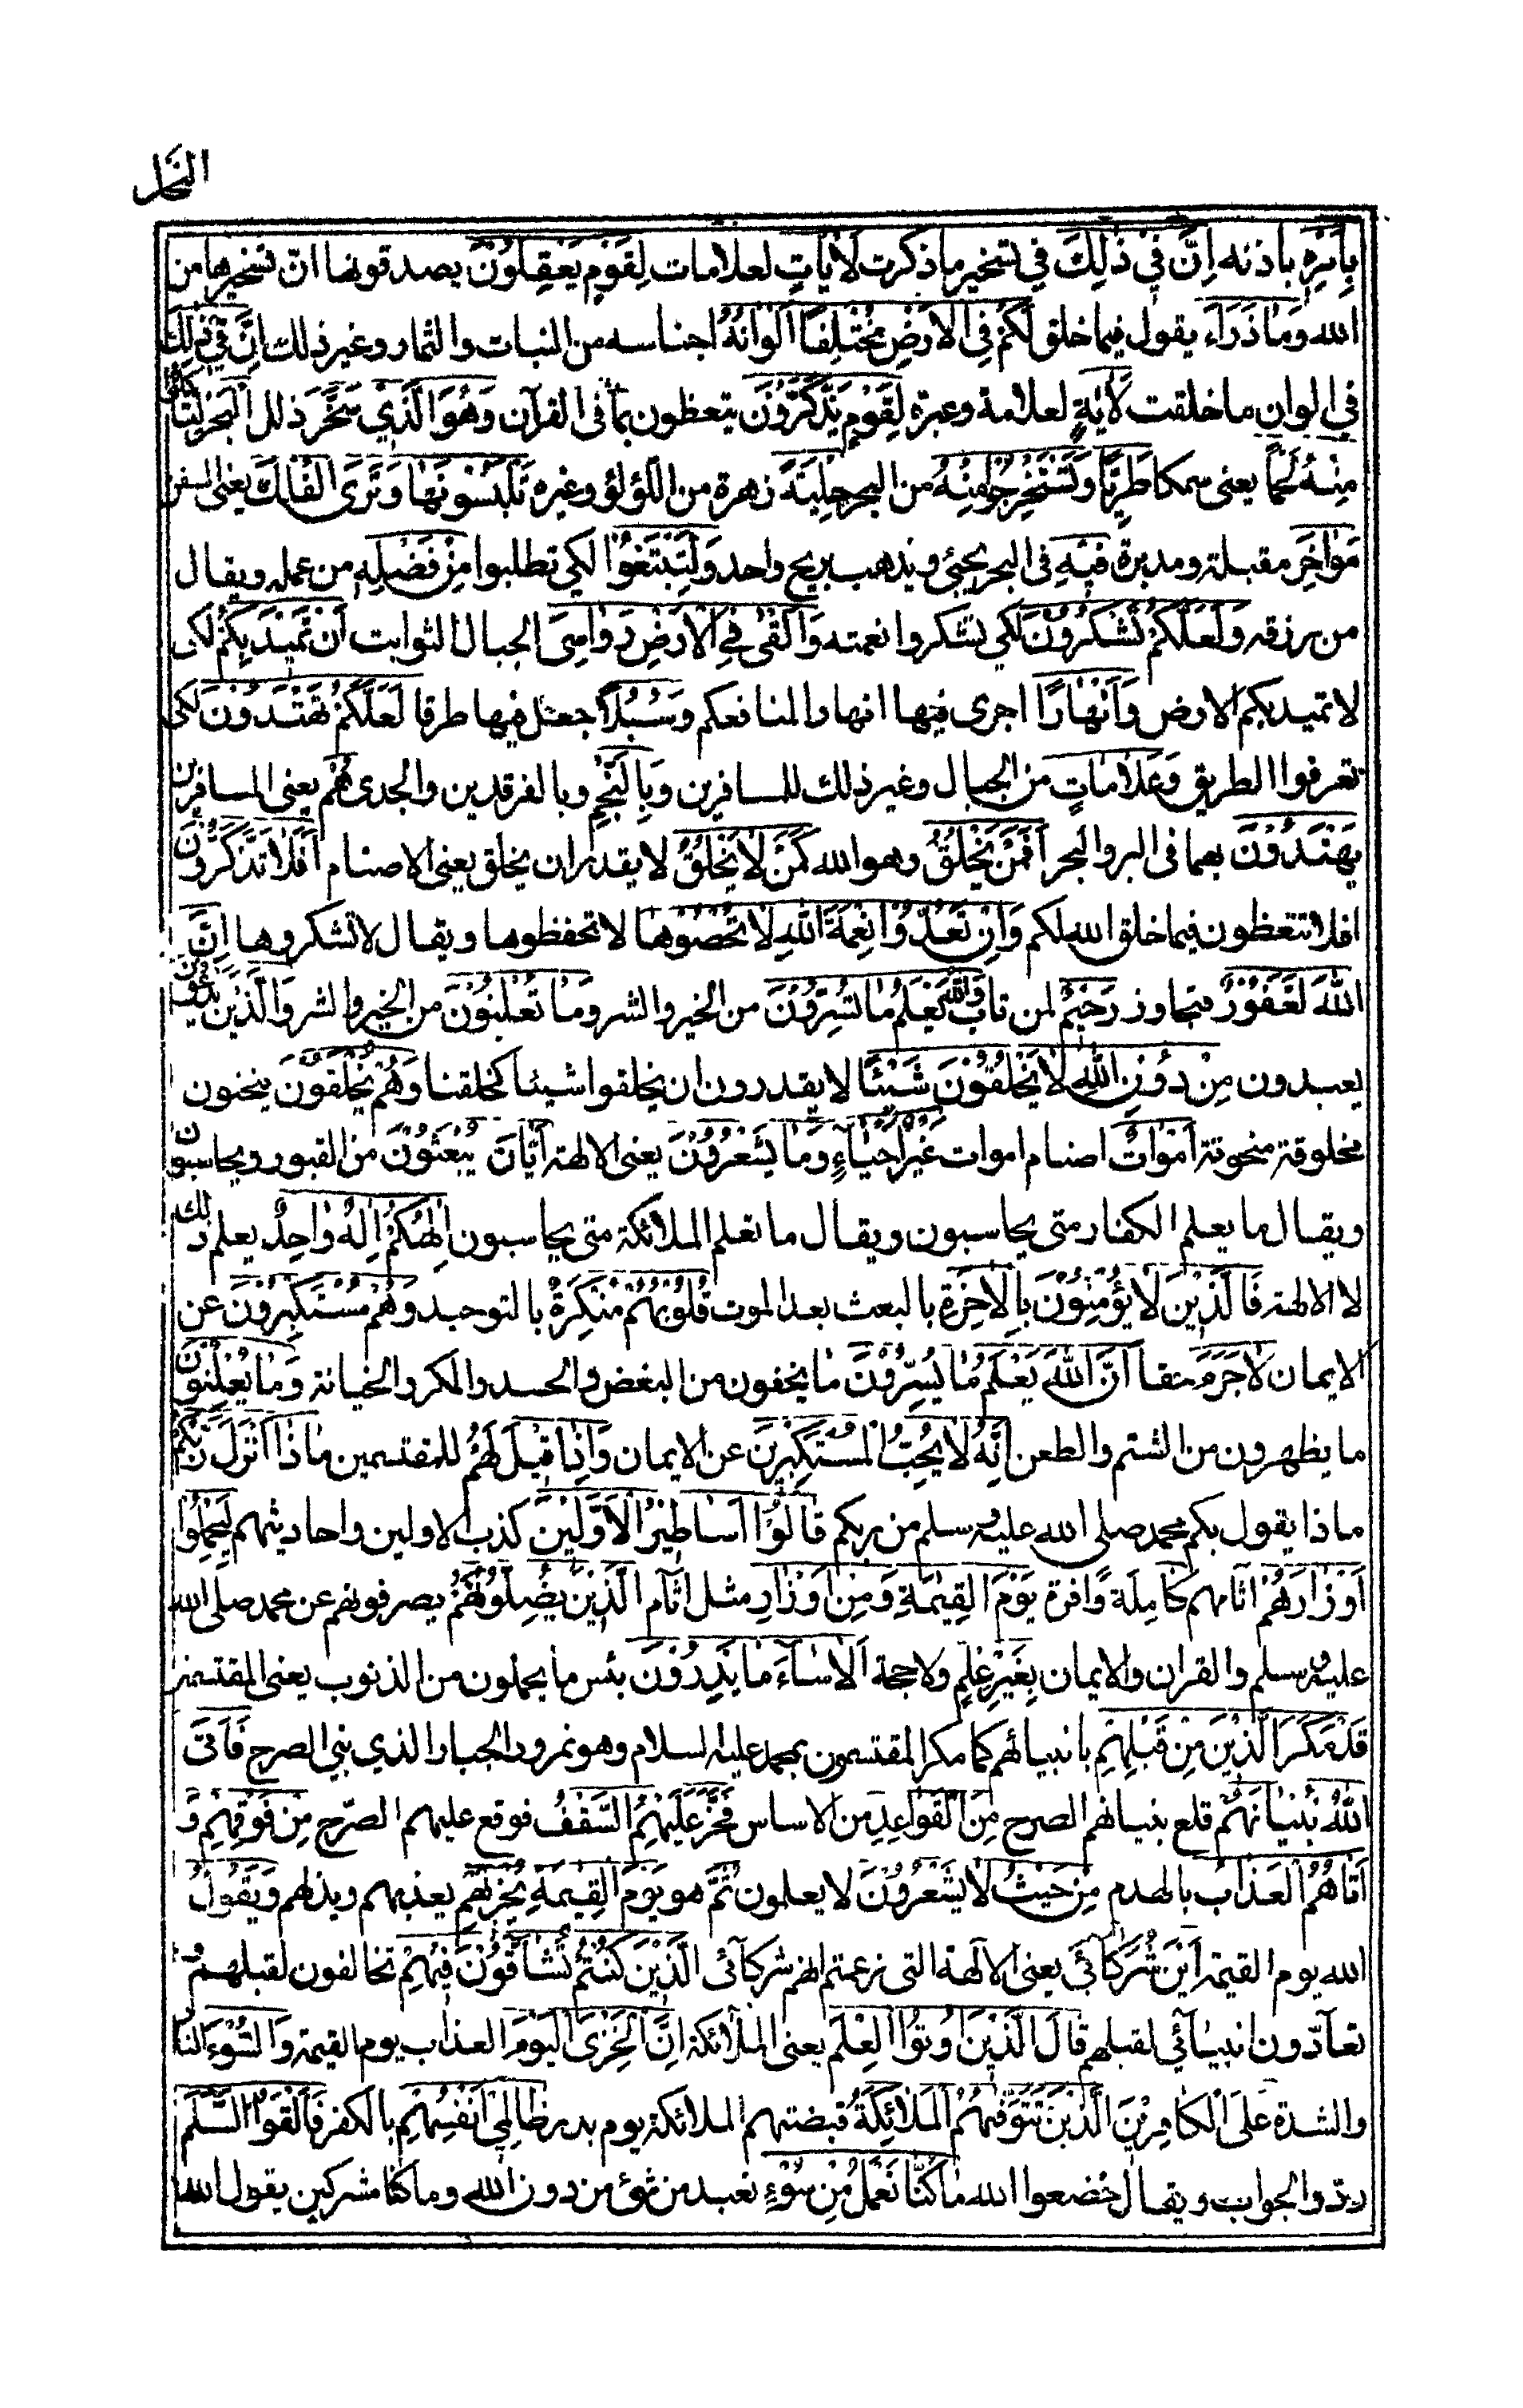 النحل
بِاَمْرِهٖ باذنه اِنَّ فِيْ ذٰلِكَ في تسخير ما ذكرت لَاٰيَاتٍ لعلامات لِقَوْمٍ يَعْقِلُوْنَ يصدقونها انّ تسخيرها من
الله وَمَا ذَرَاَء يقول فيما خلق لَكُمْ فِي الْاَرْضِ مُخْتَلِفًا اَلْوَانُهٗ اجناسه من النبات والثمار وغير ذلك اِنَّ فِيْ ذٰلِكَ
في الوان ما خلقت لَاٰيَةٍ لعلامة وعبرة لِقَوْمٍ يَذَّكَّرُوْنَ يتعظون بما فى القرآن وَهُوَ الَّذِيْ سَخَّرَ ذلل الْبَحْرَ لِتَاْكُلُوْا
مِنْهُ لَحْمًا يعنى سمكا طَرِيًّا وَّتَسْتَخْرِجُوْا مِنْهُ من البحر حِلْيَةً زهرة من اللؤلؤ وغيره تَلْبَسُوْنَهَا وَتَرَى الْفُلْكَ يعنى السفن
مَوَاخِرَ مقبلة ومدبرة فِيْهِ فى البحر يجئ ويذهب بريح واحد وَلِتَبْتَغُوْا لكي تطلبوا مِنْ فَضْلِهٖ من عمله ويقال
من رزقه وَلَعَلَّكُمْ تَشْكُرُوْنَ لكي تشكروا نعمته وَاَلْقٰى فِي الْاَرْضِ رَوَاسِيَ الجبال الثوابت اَنْ تَمِيْدَ بِكُمْ لكى
لا تميد بكم الارض وَاَنْهَارًا اجرى فيها انهارا لمنافعكم وَسُبُلًا جعل فيها طرقا لَعَلَّكُمْ تَهْتَدُوْنَ لكى
تعرفوا الطريق وَعَلَامَاتٍ من الجبال وغير ذلك للمسافرين وَبِالنَّجْمِ وبالفرقدين والجدى هُمْ يعنى المسافرين
يَهْتَدُوْنَ بهما فى البر والبحر اَفَمَنْ يَّخْلُقُ وهو الله كَمَنْ لَا يَخْلُقُ لا يقدر ان يخلق يعنى الاصنام اَفَلَا تَذَكَّرُوْنَ
افلا تتعظون فيما خلق الله لكم وَاِنْ تَعُدُّوْا نِعْمَةَ اللّٰهِ لَا تُحْصُوْهَا لا تحفظوها ويقال لا تشكروها اِنَّ
اللّٰهَ لَغَفُوْرٌ متجاوز رَحِيْمٌ لمن تاب وَاللّٰهُ يَعْلَمُ مَا تُسِرُّوْنَ من الخير والشر وَمَا تُعْلِنُوْنَ من الخير والشر وَالَّذِيْنَ يَدْعُوْنَ
يعبدون مِنْ دُوْنِ اللّٰهِ لَا يَخْلُقُوْنَ شَيْئًا لا يقدرون ان يخلقوا شيئا كخلقنا وَهُمْ يُخْلَقُوْنَ ينحتون
مخلوقة منحوتة اَمْوَاتٌ اصنام اموات غَيْرُ اَحْيَاءٍ وَّمَا يَشْعُرُوْنَ يعنى الالهة اَيَّانَ يُبْعَثُوْنَ من القبور ويحاسبون
ويقال ما يعلم الكفار متى يحاسبون ويقال ما تعلم الملائكة متى يحاسبون اِلٰهُكُمْ اِلٰهٌ وَاحِدٌ يعلم ذلك
لا الالهة فَالَّذِيْنَ لَا يُؤْمِنُوْنَ بِالْاٰخِرَةِ بالبعث بعد الموت قُلُوْبُهُمْ مُنْكِرَةٌ بالتوحيد وَهُمْ مُسْتَكْبِرُوْنَ عن
الايمان لَاجَرَمَ حقا اَنَّ اللّٰهَ يَعْلَمُ مَا يُسِرُّوْنَ ما يخفون من البغض والحسد والمكر والخيانة وَمَا يُعْلِنُوْنَ
ما يظهرون من الشتم والطعن اِنَّهٗ لَا يُحِبُّ الْمُسْتَكْبِرِيْنَ عن الايمان وَاِذَا قِيْلَ لَهُمْ للمقتسمين مَاذَا اَنْزَلَ رَبُّكُمْ
ماذا يقول بكم محمد صلى الله عليه وسلم من ربكم قَالُوْا اَسَاطِيْرُ الْاَوَّلِيْنَ كذب الاولين واحاديثهم لِيَحْمِلُوْا
اَوْزَارَهُمْ اثامهم كَامِلَةً وافرة يَوْمَ الْقِيٰمَةِ وَمِنْ اَوْزَارِ مثل اثام الَّذِيْنَ يُضِلُّوْنَهُمْ يصرفونهم عن محمد صلى الله
عليه وسلم والقران والايمان بِغَيْرِ عِلْمٍ ولا حجة اَلَا سَاءَ مَا يَزِرُوْنَ بئس ما يحملون من الذنوب يعنى المقتسمين
قَدْ مَكَرَ الَّذِيْنَ مِنْ قَبْلِهِمْ بانبيائهم كما مكر المقتسمون بمحمد عليه السلام وهو نمرود الجبار الذي بنى الصرح فَاَتَى
اللّٰهُ بُنْيَانَهُمْ قلع بنيانهم الصرح مِنَ الْقَوَاعِدِ من الاساس فَخَرَّ عَلَيْهِمُ السَّقْفُ فوقع عليهم الصرح مِنْ فَوْقِهِمْ وَ
اَتَاهُمُ الْعَذَابُ بالهدم مِنْ حَيْثُ لَا يَشْعُرُوْنَ لا يعلمون ثُمَّ هو يَوْمَ الْقِيٰمَةِ يُخْزِيْهِمْ يعذبهم ويذلهم وَيَقُوْلُ
الله يوم القيمة اَيْنَ شُرَكَآئِيَ يعنى الآلهة التى زعمتم انهم شركآئى الَّذِيْنَ كُنْتُمْ تُشَاقُّوْنَ فِيْهِمْ تخالفون لقبلهم و
تعآدّون انبيائي لقبلهم قَالَ الَّذِيْنَ اُوْتُوا الْعِلْمَ يعنى الملائكة اِنَّ الْخِزْيَ الْيَوْمَ العذاب يوم القيمة وَالسُّوْءَ النار
والشدة عَلَى الْكَافِرِيْنَ الَّذِيْنَ تَتَوَفّٰهُمُ الْمَلَائِكَةُ قبضتهم الملائكة يوم بدر ظَالِمِيْ اَنْفُسِهِمْ بالكفر فَاَلْقَوُا السَّلَمَ
ردّوا الجواب ويقال خضعوا الله مَا كُنَّا نَعْمَلُ مِنْ سُوْءٍ نعبد من شئ من دون الله وما كنا مشركين يقول الله